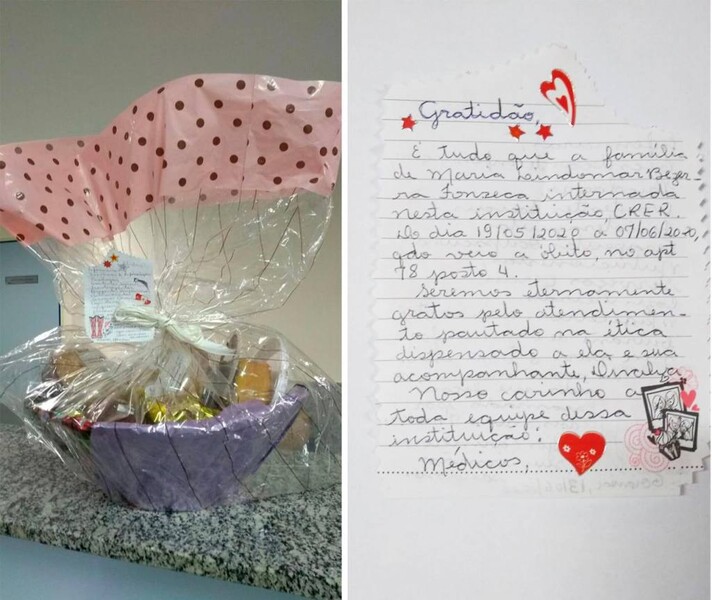 Gratidão,
É tudo que a família
de Maria Lindomar Bezer
ra Fonseca internada
nesta instituição, CRER.
do dia 19/05/2020 a 07/06/2020,
qdo veio a óbito, no apt
78 posto 4.
Seremos eternamente
gratos pelo atendimen-
to pautado na ética
dispensado a ela e sua
acompanhante,
Nosso carinho a
toda equipe dessa
instituição:
Médicos,